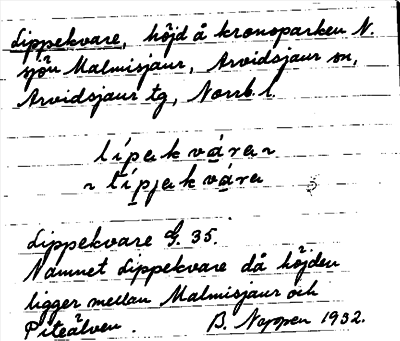 Lippekvare, höjd å kronoparken N.
sjön Malmisjaur, Arvidsjaur sn,
Arvidsjaur tg, Norrb. l.
lípɐkvárɐ ~
~ lípjɐkvárɐ
Lippekvare G. 35.
Namnet Lippekvare då höjden
ligger mellan Malmisjaur och
Piteälven. B. Noppen 1932.